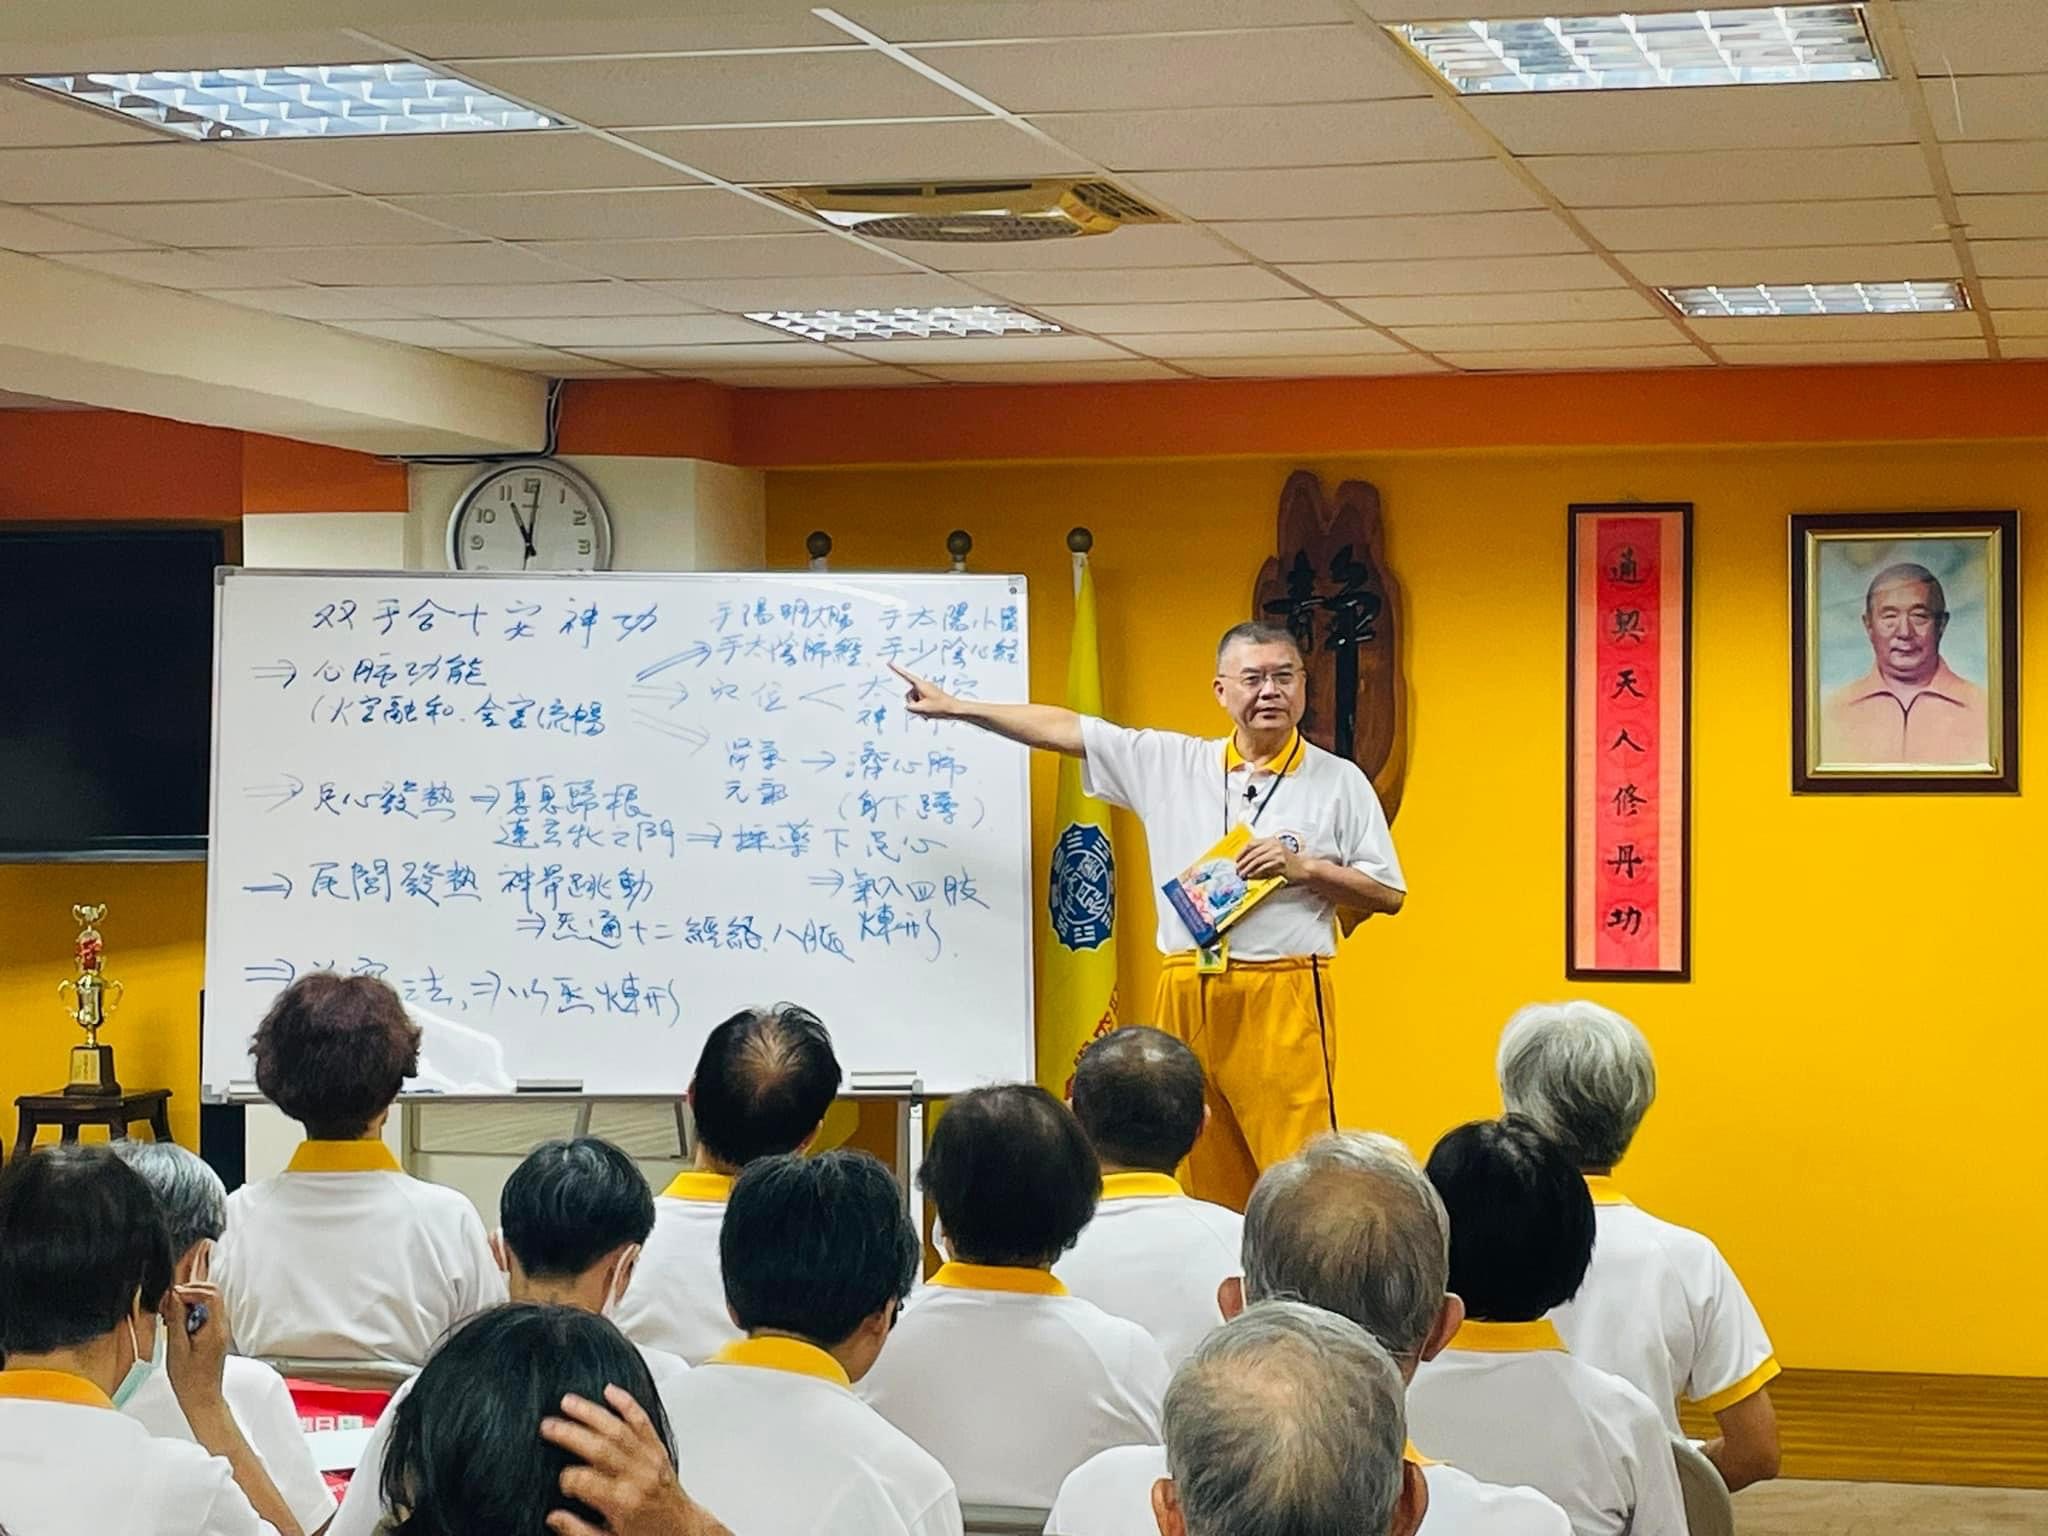 双手合十安神功
手陽明大腸 手太陽小腸
⇒ 心肺功能
⇒ 手太陰肺經、手少陰心經
(火空融和、金害流暢
⇒ 穴位 < 太
神門
腎氣 → 濟心肺
元氣 (身下蹲)
⇒ 足心發熱 ⇒ 息息歸根
達玄牝之門 ⇒ 採藥下足心
→ 尾閭發熱 神骨跳動
⇒ 氣入四肢
煉形
⇒ 炁通十二經絡、八脈
⇒ 法,⇒ 以炁煉形
靜
道契天人修丹功
11 12 1
10 2
9 3